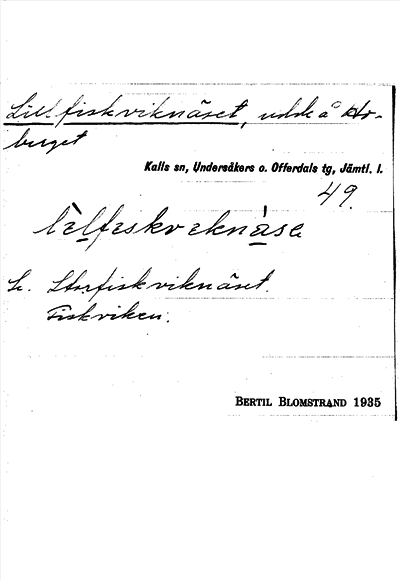 Lill-fiskviknäset, udde å Ho-
berget
Kalls sn, Undersåkers o. Offerdals tg, Jämtl. l.
49.
lèlfeskveknàse
L. Storfiskviknäset.
Fiskviken.
BERTIL BLOMSTRAND 1935